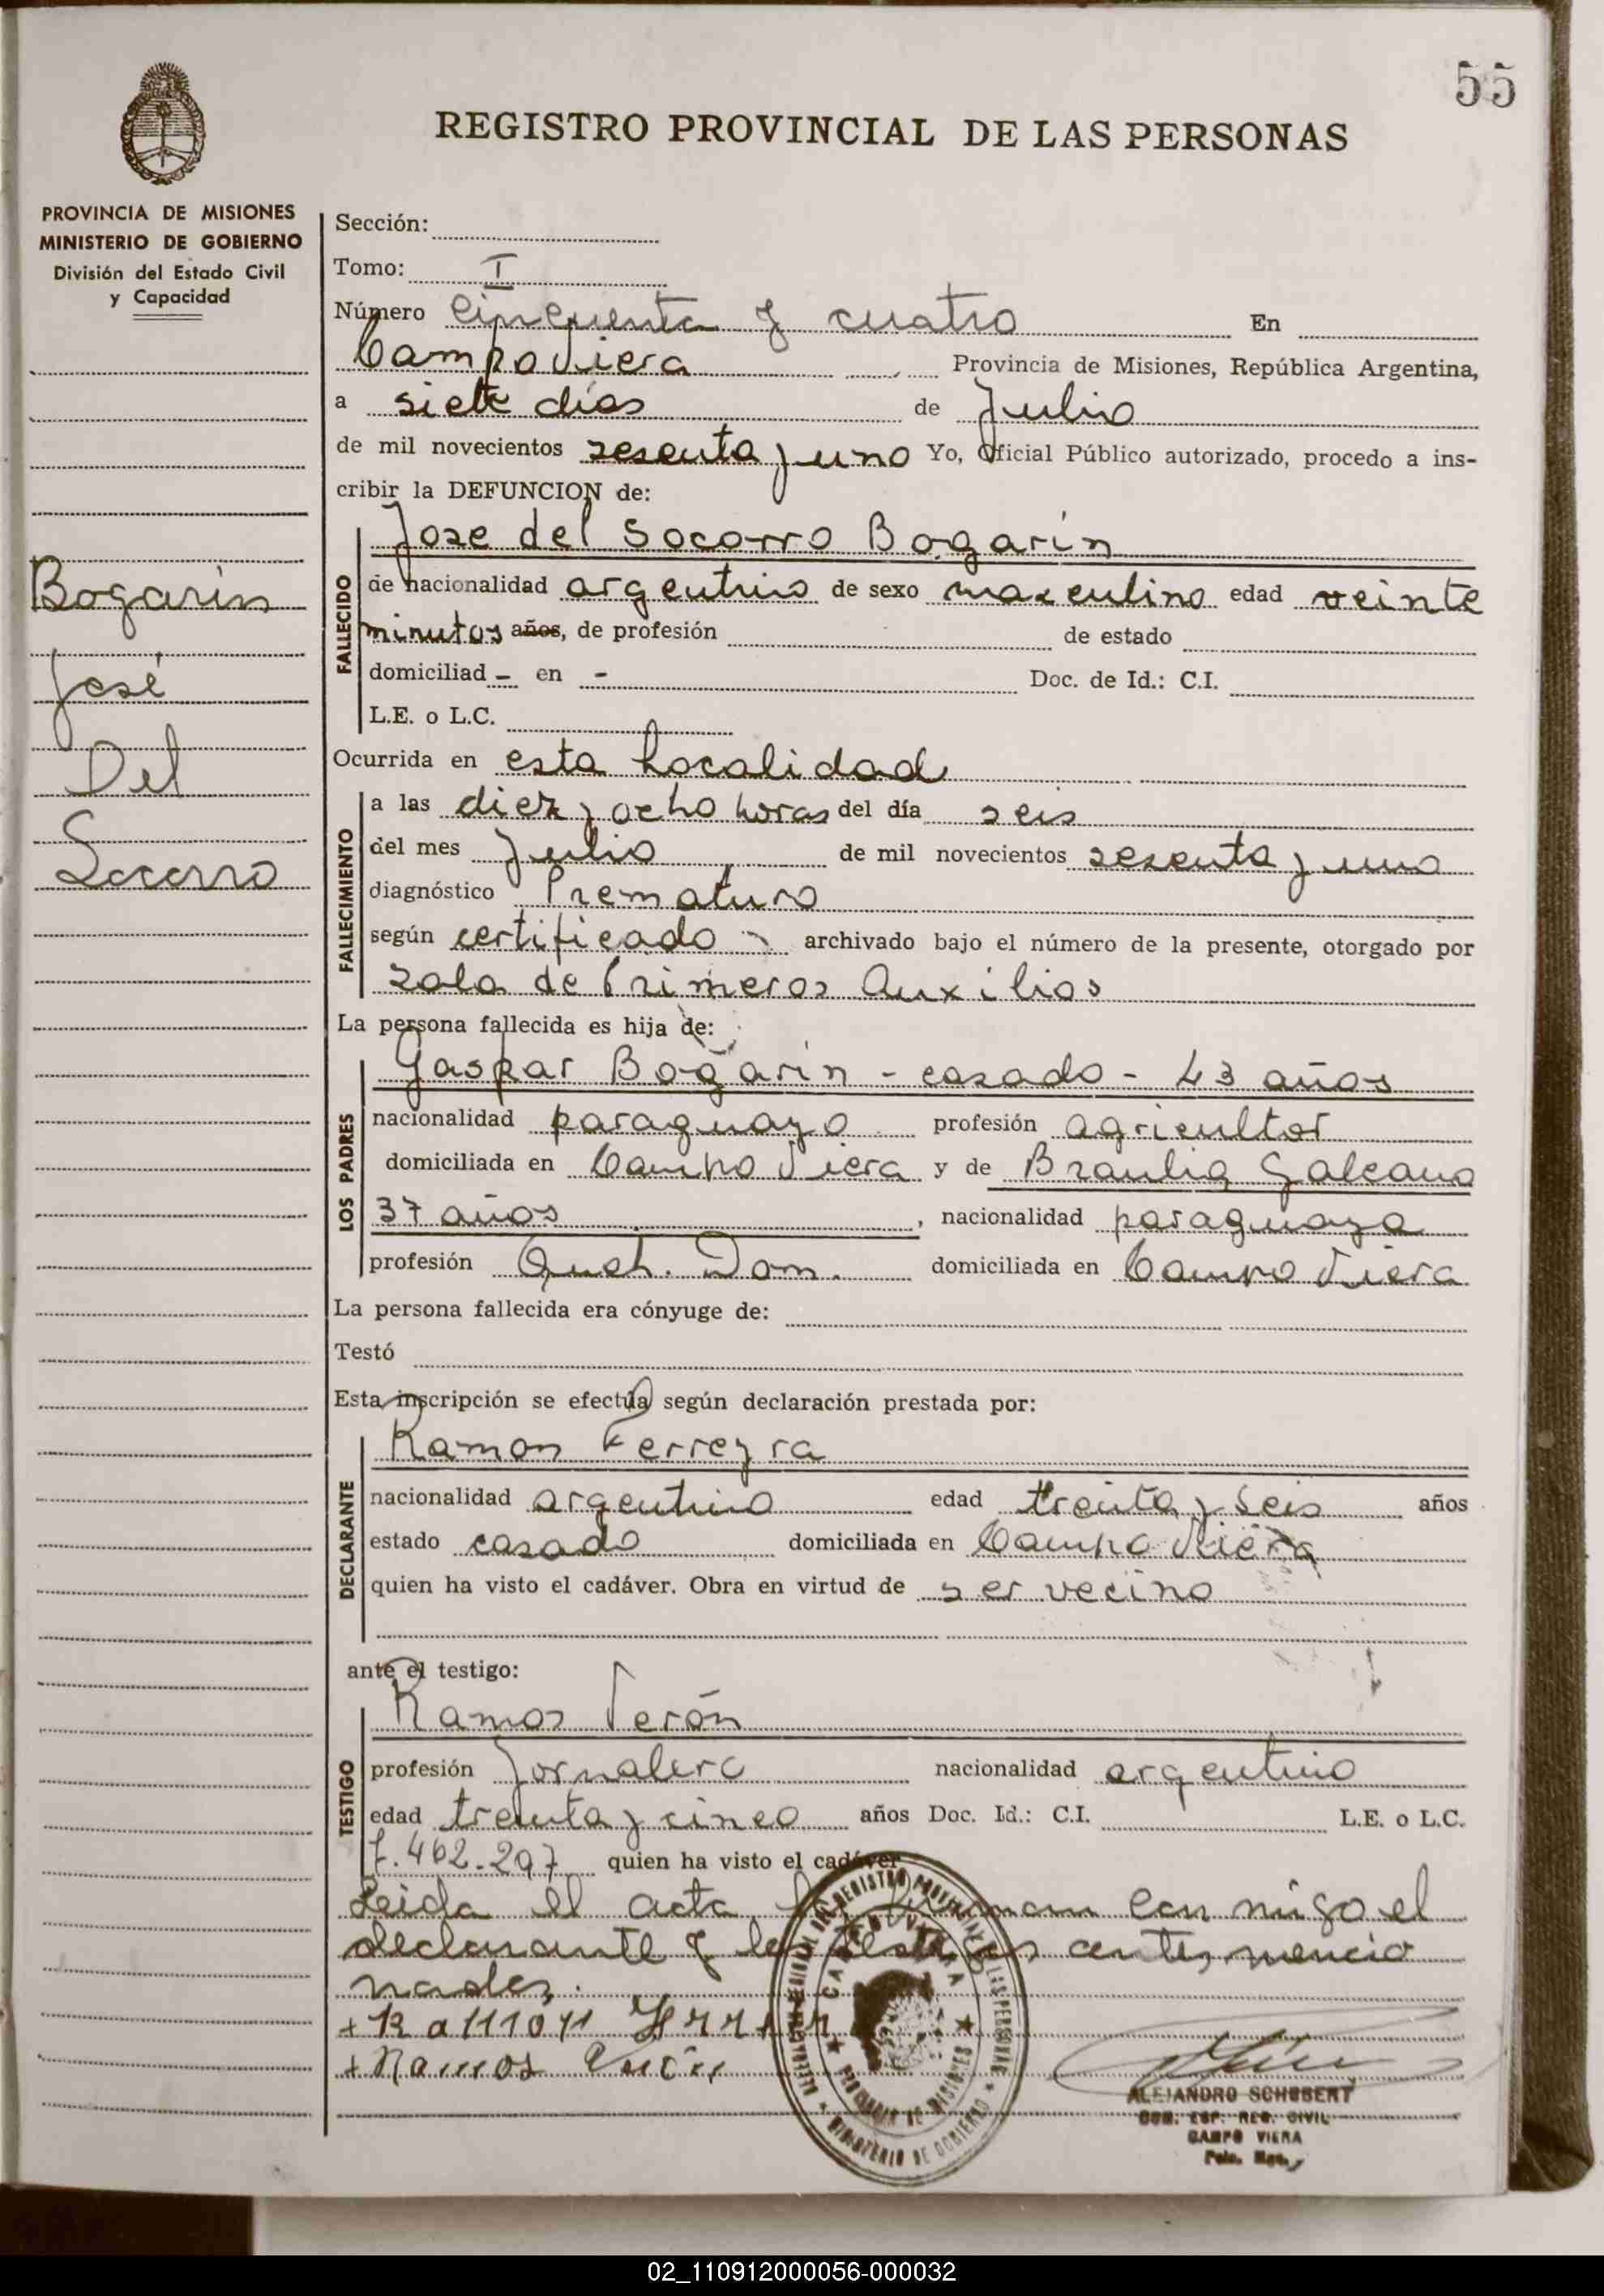 55
REGISTRO PROVINCIAL DE LAS PERSONAS
PROVINCIA DE MISIONES
MINISTERIO DE GOBIERNO
División del Estado Civil
y Capacidad
Bogarin
José
Del
Socorro
Sección:
Tomo: I
Número Cincuenta y cuatro En
Campo Viera Provincia de Misiones, República Argentina,
a siete días de Julio
de mil novecientos sesenta y uno Yo, Oficial Público autorizado, procedo a ins-
cribir la DEFUNCION de:
Jose del Socorro Bogarín
FALLECIDO
de nacionalidad argentino de sexo masculino edad veinte
minutos años, de profesión de estado
domiciliad - en - Doc. de Id.: C.I.
L.E. o L.C.
Ocurrida en esta Localidad
FALLECIMIENTO
a las diez y ocho horas del día seis
del mes Julio de mil novecientos sesenta y uno
diagnóstico Prematuro
según certificado archivado bajo el número de la presente, otorgado por
sala de Primeros Auxilios
La persona fallecida es hija de:
LOS PADRES
Gaspar Bogarin - casado - 43 años
nacionalidad paraguayo profesión agricultor
domiciliada en Campo Viera y de Braulia Galeano
37 años, nacionalidad paraguaya
profesión Queh. Dom. domiciliada en Campo Viera
La persona fallecida era cónyuge de:
Testó
Esta inscripción se efectúa según declaración prestada por:
DECLARANTE
Ramon Ferreyra
nacionalidad argentino edad treinta y seis años
estado casado domiciliada en Campo Viera
quien ha visto el cadáver. Obra en virtud de ser vecino
ante el testigo:
TESTIGO
Ramos Verón
profesión Jornalero nacionalidad argentino
edad treinta y cinco años Doc. Id.: C.I. L.E. o L.C.
7.462.297 quien ha visto el cadáver
Leida el acta firman con migo el
declarante y los testigos antes mencio
nados.
+ Ramon
+ Ramos Verón
CAMPO VIERA
PROVINCIA DE MISIONES
MINISTERIO DE GOBIERNO
ALEJANDRO SCHUBERT
REG. CIVIL
CAMPO VIERA
02_110912000056-000032